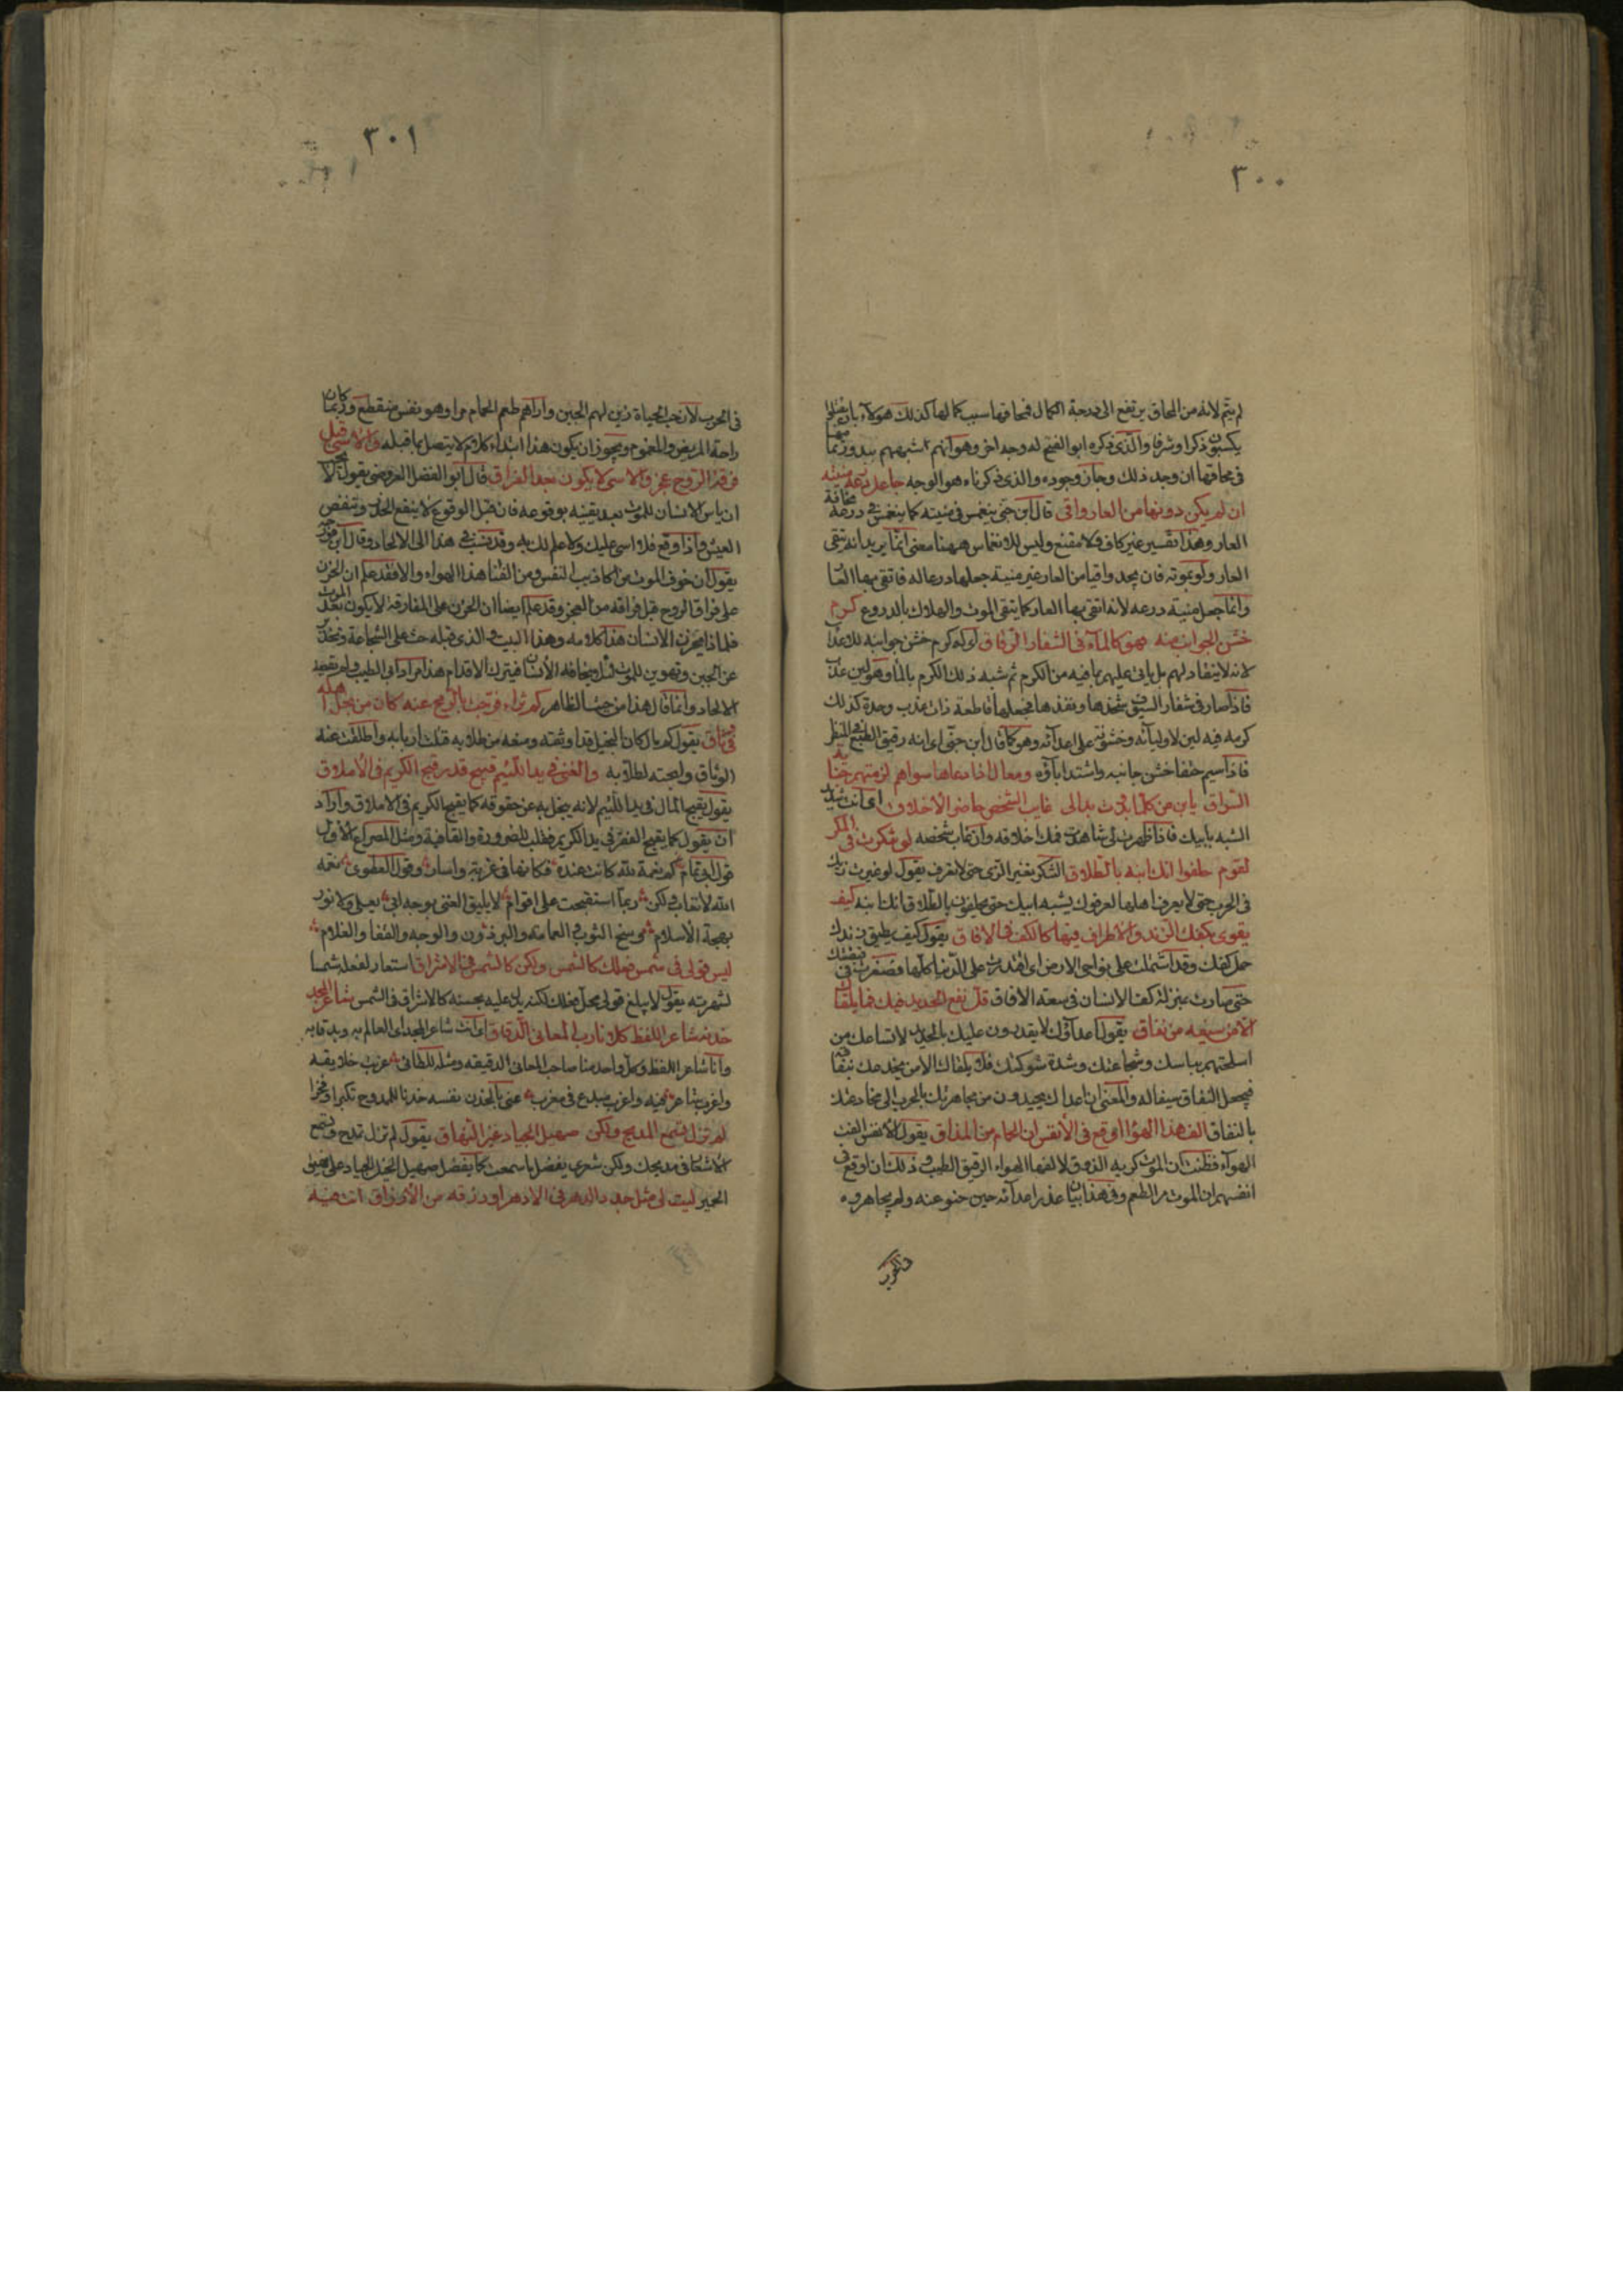 ٣٠٠
لم يتم لانه من المحاق يرتفع الى درجة الكمال فمحاقها سبب كمالها كذلك هؤلاء بان يقتلوا
يكسبون ذكرا وشرفا والذى ذكره ابو الفتح له وجه اخر وهو انهم اشبههم ببدور تمامها
فى محاقها ان وجد ذلك وجاز وجوده والذى ذكرناه هو الوجه جاعل درعه منيته
ان لم يكن دونها من العار واقى قال ابن جنى ينغمس فى منيته كما ينغمس فى درعه مخافة
العار وهذا تفسير غير كاف ولا مقنع وليس للانغماس ههنا معنى انما يريد انه يتقى
العار ولو بموته فان لم يجد واقيا من العار غير منيته جعلها درعا له فاتقى بها العار
وانما جعل منيته درعه لانه اتقى بها العار كما يتقى الموت والهلاك بالدروع كرم
خشن الجوانب منه فهو كالماء فى الشفار الرقاق اى له كرم خشن جوانبه للاعداء
لانه لا ينقاد لهم بل يابى عليهم بما فيه من الكرم ثم شبه ذلك الكرم بالماء وهو لين عذب
فاذا صار فى شفار السيوف شحذها ونفذها فجعلها قاطعة ذات غرب وحدة كذلك
كرمه فيه لين لاوليائه وخشونة على اعدائه وهو كما قال ابن جنى اى انه رقيق الطبع فى المنظر
فاذا سيم خسفا خشن جانبه واشتد اباؤه ومعال اذا ادعاها سواهم لزمته جناية
السراق يا ابن من كلما بدوت بدا لى غايب الشخص حاضر الاخلاق اى انت شديد
الشبه بابيك فاذا ظهرت لى شاهدت فيك اخلاقه وان غاب شخصه لو تنكرت فى المكر
لقوم حلفوا انك ابنه بالطلاق التنكر تغير الزى حتى لا تعرف يقول لو غيرت زيك
فى الحرب حتى لا يعرف اهلها لعرفوك بشبه ابيك حتى يحلفون بالطلاق انك ابنه كيف
يقوى بكفك الزند والافاق فيها كالكف فى الافاق يقول كيف يطيق زندك
حمل كفك وقد اشتملت على نواحى الارض اى اقتدرت على الدنيا كلها فصغرت فى قبضتك
حتى صارت بمنزلة كف الانسان فى سعة الافاق قل نفع الحديد فيك فما يلقاك
الا من سيفه من نفاق يقول اعداؤك لا يقدرون عليك بالحديد لامتناعك من
اسلحتهم بباسك وشجاعتك وشدة شوكتك فلا يلقاك الا من يخدعك بنفاق
فيجعل النفاق سيفا له والمعنى ان اعداك يحيدون من مجاهرتك بالحرب الى مخادعتك
بالنفاق الف هذا الهواء اوقع فى الانفس ان الحمام مر المذاق يقول الانفس الفت
الهواء فظنت ان الموت كريه الذوق لالفها الهواء الرقيق الطيب وذلك ان اوقع فى
انفسهم ان الموت مر الطعم وفى هذا بيان عذر اعدائه حين خنعوا عنه ولم يجاهروه
٣٠١
فى الحرب لان حب الحياة زين لهم الجبن واراهم طعم الحمام مرا وهو نفس منقطع وربما كان
راحة المريض والمغموم ويجوز ان يكون هذا ابتداء كلام لا يتصل بما قبله والاسى قبل
فرقة الروح عجز والاسى لا يكون بعد الفراق قال ابو الفضل العروضى يقول لا
ان ياس الانسان للموت بعد يقينه بوقوعه فان قبل الوقوع لا ينفع الحذر وينغص
العيش واذا وقع فلا اسى عليك ولا علم لك به وقد نسب فى هذا الى الالحاد وقال ابن فورجة
يقول ان خوف الموت من اكاذيب النفس ومن الفنا هذا الهواء والا فقد علم ان الحزن
على فراق الروح قبل فراقه من العجز وقد علم ايضا ان الحزن على المفارقة لا يكون بعد الموت
فلماذا يحزن الانسان هذا كلامه وهذا البيت والذى قبله حث على الشجاعة وتحذير
عن الجبن وتهوين للموت لئلا يخافه الانسان فيترك الاقدام هذا مراد ابى الطيب ولم يقصد
الالحاد وانما قال هذا من حيث الظاهر كم ثراء فرجت بالرمح عنه كان من بخل اهله
فى وثاق يقول كم مال كان البخيل قد اوثقه ومنعه من طلابه قتلت اربابه واطلقت عنه
الوثاق وابحته لطلابه والغنى فى يد اللئيم قبيح قدر قبح الكريم فى الاملاق
يقول يقبح المال فى يد اللئيم لانه يبخل به عن حقوقه كما يقبح الكريم فى الاملاق واراد
ان يقول كما يقبح الفقر فى يد الكريم فقلب للضرورة والقافية ومثل المصراع الاول
قول ابى تمام كم نعمة لله كانت عنده فكانها فى غربة واسار وقول العطوى نعمة
الله لا تعاب ولكن ربما استقبحت على اقوام لا يليق الغنى بوجه ابى يعلى ولا نور
بهجة الاسلام وسخ الثوب والعمامة والبرذون والوجه والقفا والغلام
ليس قولى فى شمس فعلك كالشمس ولكن كالشمس فى الاشراق استعار لفعله شمسا
لشهرته يقول لا يبلغ قولى محل فعلك لكنه يدل عليه بحسنه كالاشراق فى الشمس شاعر المجد
خدنه شاعر اللفظ كلانا رب المعانى الدقاق اى انت شاعر المجد اى العالم به وبدقايقه
وانا شاعر اللفظ وكل واحد منا صاحب المعانى الدقيقة ومثله للطائى غربت خلايقه
واغرب شاعر فيه واغرب مبدع فى مغرب عنى بالخدن نفسه خدنا للممدوح تكبرا وفخرا
لم تزل تسمع المديح ولكن صهيل الجياد غير النهاق يقول لم تزل تمدح وتسمع
الاشعار فى مديحك ولكن شعرى يفضل ما سمعت كما يفضل صهيل الخيل الجياد على نهيق
الحمير ليت لى مثل جد ذا الدهر فى الادهر او رزقه من الارزاق انت فيه